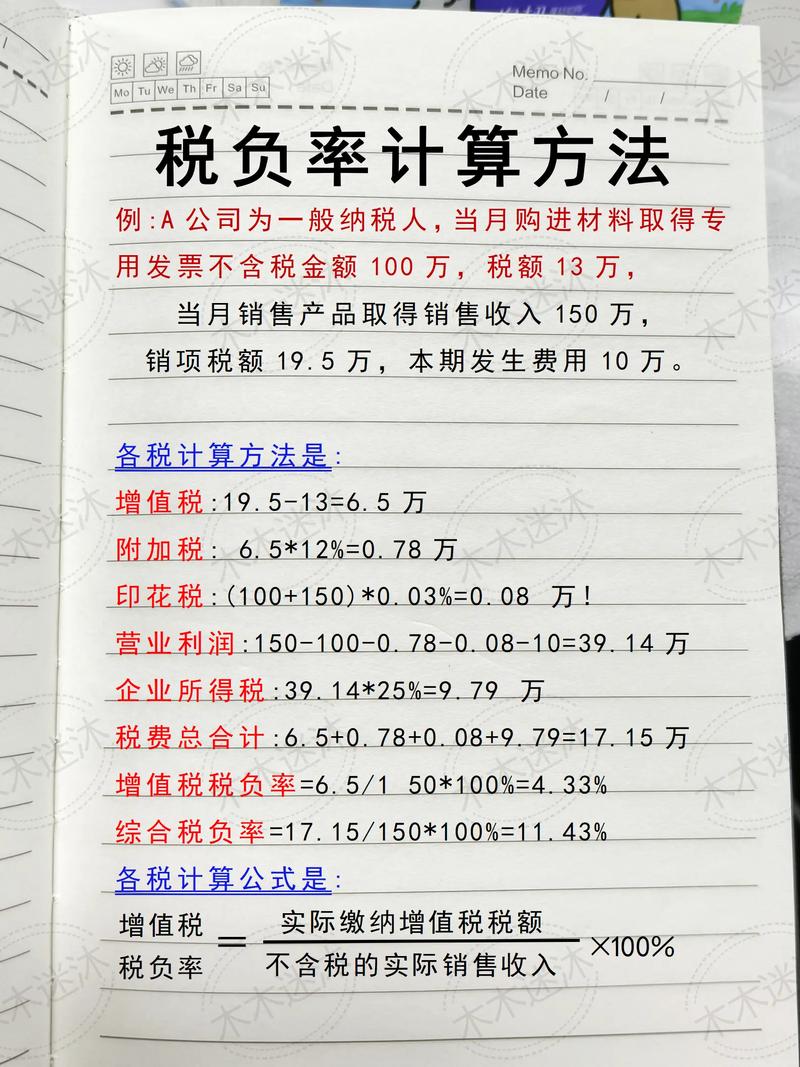 Mo Tu We Th Fr Sa Su
Memo No.
Date / /
税负率计算方法
例:A公司为一般纳税人,当月购进材料取得专
用发票不含税金额100万，税额13万，
当月销售产品取得销售收入150万，
销项税额19.5万，本期发生费用10万。
各税计算方法是:
增值税:19.5-13=6.5万
附加税: 6.5*12%=0.78万
印花税:(100+150)*0.03%=0.08 万!
营业利润:150-100-0.78-0.08-10=39.14万
企业所得税:39.14*25%=9.79 万
税费总合计:6.5+0.78+0.08+9.79=17.15万
增值税税负率=6.5/1 50*100%=4.33%
综合税负率=17.15/150*100%=11.43%
各税计算公式是:
增值税税负率 = 实际缴纳增值税税额
不含税的实际销售收入 ×100%
木木迷沐